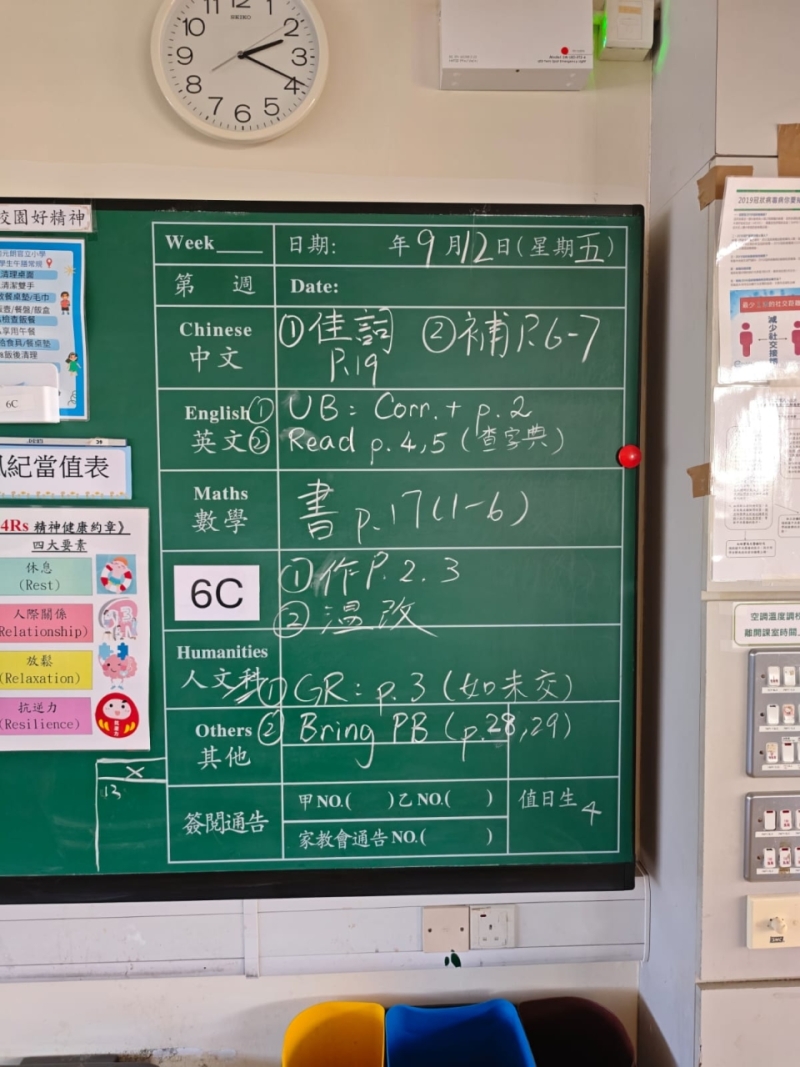 12 1 2 3 4 5 6 7 8 9 10
SEIKO
校園好精神
清理桌面
清潔雙手
享用午餐
飯後清理
6C
紀當值表
4Rs 精神健康約章》
四大要素
休息
(Rest)
人際關係
Relationship)
放鬆
(Relaxation)
抗逆力
(Resilience)
Week 日期: 年9月12日(星期五)
第 週 Date:
Chinese ①佳詞 ②補P.6-7
中文 P.19
English ① UB: Corr. + p.2
英文 ② Read p.4,5 (查字典)
Maths
數學 書 p.17(1-6)
6C ①作P.2.3
②溫改
Humanities
人文科 ① GR: p.3 (如未交)
Others ② Bring PB (p.28,29)
其他
簽閱通告 甲NO.( )乙NO.( ) 值日生 4
家教會通告NO.( )
X
13
減少社交接觸
空調溫度調校
離開課室時間